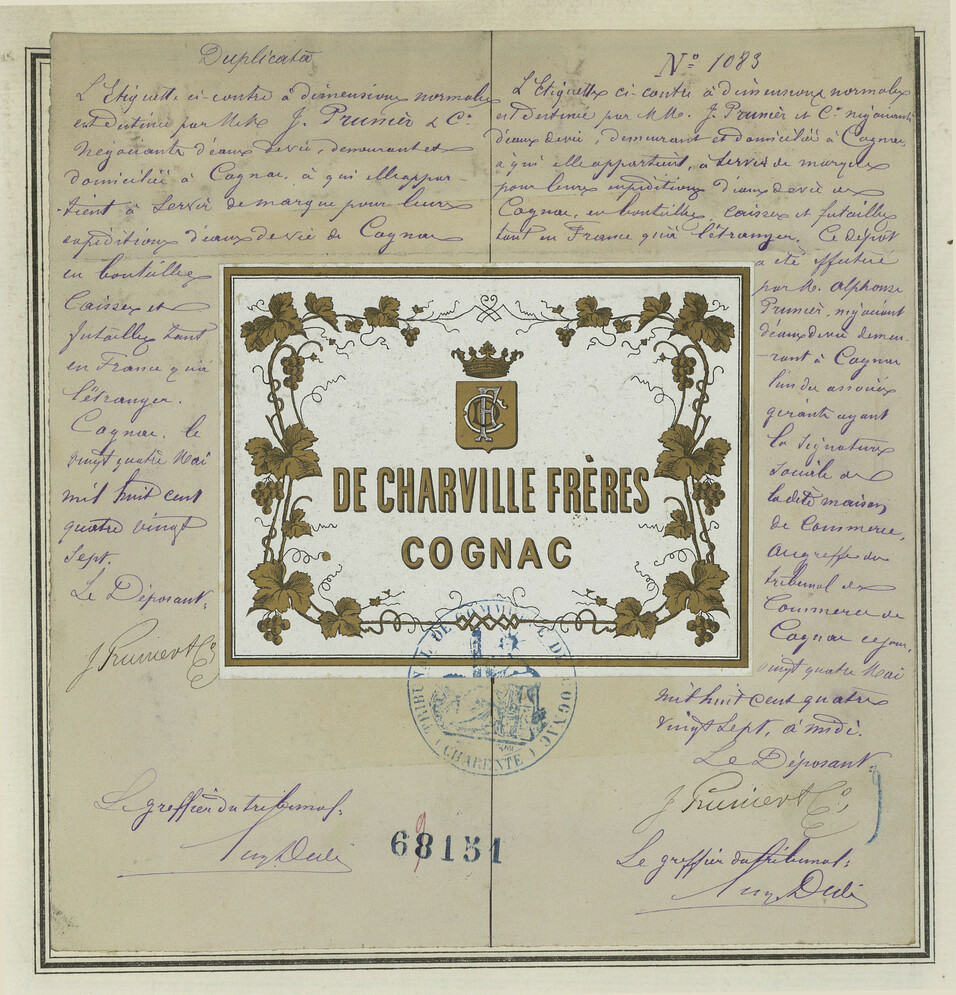 Duplicata
L'Etiquette ci-contre à dimensions normales
est destinée par MM. J. Prunier & Cie
Négociants d'eaux de vie, demeurant et
domiciliés à Cognac, à qui elle appar-
-tient à servir de marque pour leurs
expéditions d'eaux de vie de Cognac
en bouteilles
Caisses et
futailles tant
en France qu'à
l'étranger.
Cognac, le
vingt quatre Mai
mil huit cent
quatre vingt
Sept.
Le Déposant,
J. Prunier & Co
Le greffier du tribunal:
No 1083
L'Etiquette ci-contre à dimensions normales
est destinée par MM. J. Prunier et Cie négociants
d'eaux de vie, demeurant et domiciliés à Cognac,
à qui elle appartient, à servir de marque
pour leurs expéditions d'eaux de vie de
Cognac, en bouteilles, caisses et futailles
tant en France qu'à l'étranger. Ce dépôt
a été effectué
par M. Alphonse
Prunier, négociant
d'eaux de vie demeu-
-rant à Cognac
l'un des associés
gérants ayant
la signature
sociale de
la dite maison
de Commerce,
au greffe du
tribunal de
Commerce de
Cognac ce jour,
vingt quatre Mai
mil huit cent quatre
vingt Sept, à midi.
Le Déposant:
J. Prunier & Co
Le greffier du tribunal:
DE CHARVILLE FRÈRES
COGNAC
TRIBUNAL DE COMMERCE DE COGNAC
(CHARENTE)
68151
9